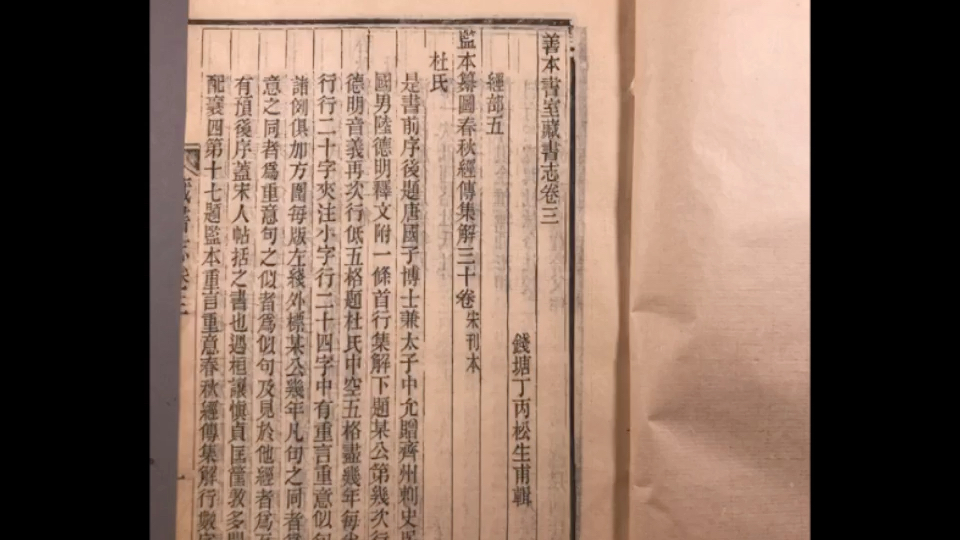 善本書室藏書志卷三
錢塘丁丙松生甫輯
經部五
監本纂圖春秋經傳集解三十卷 宋刊本
杜氏
是書前序後題唐國子博士兼太子中允贈齊州刺史吳
國男陸德明釋文附一條首行集解下題某公第幾次行
德明音義再次行低五格題杜氏中空五格盡幾年每半
行行二十字夾注小字行二十四字中有重言重意似句
諸例俱加方圍每版左綫外標某公幾年凡句之同者爲
意之同者爲重意句之似者爲似句及見於他經者爲互
有預後序蓋宋人帖括之書也遇桓讓愼貞匡筐敦多
配襄四第十七題監本重言重意春秋經傳集解行數字
藏書志卷三
一